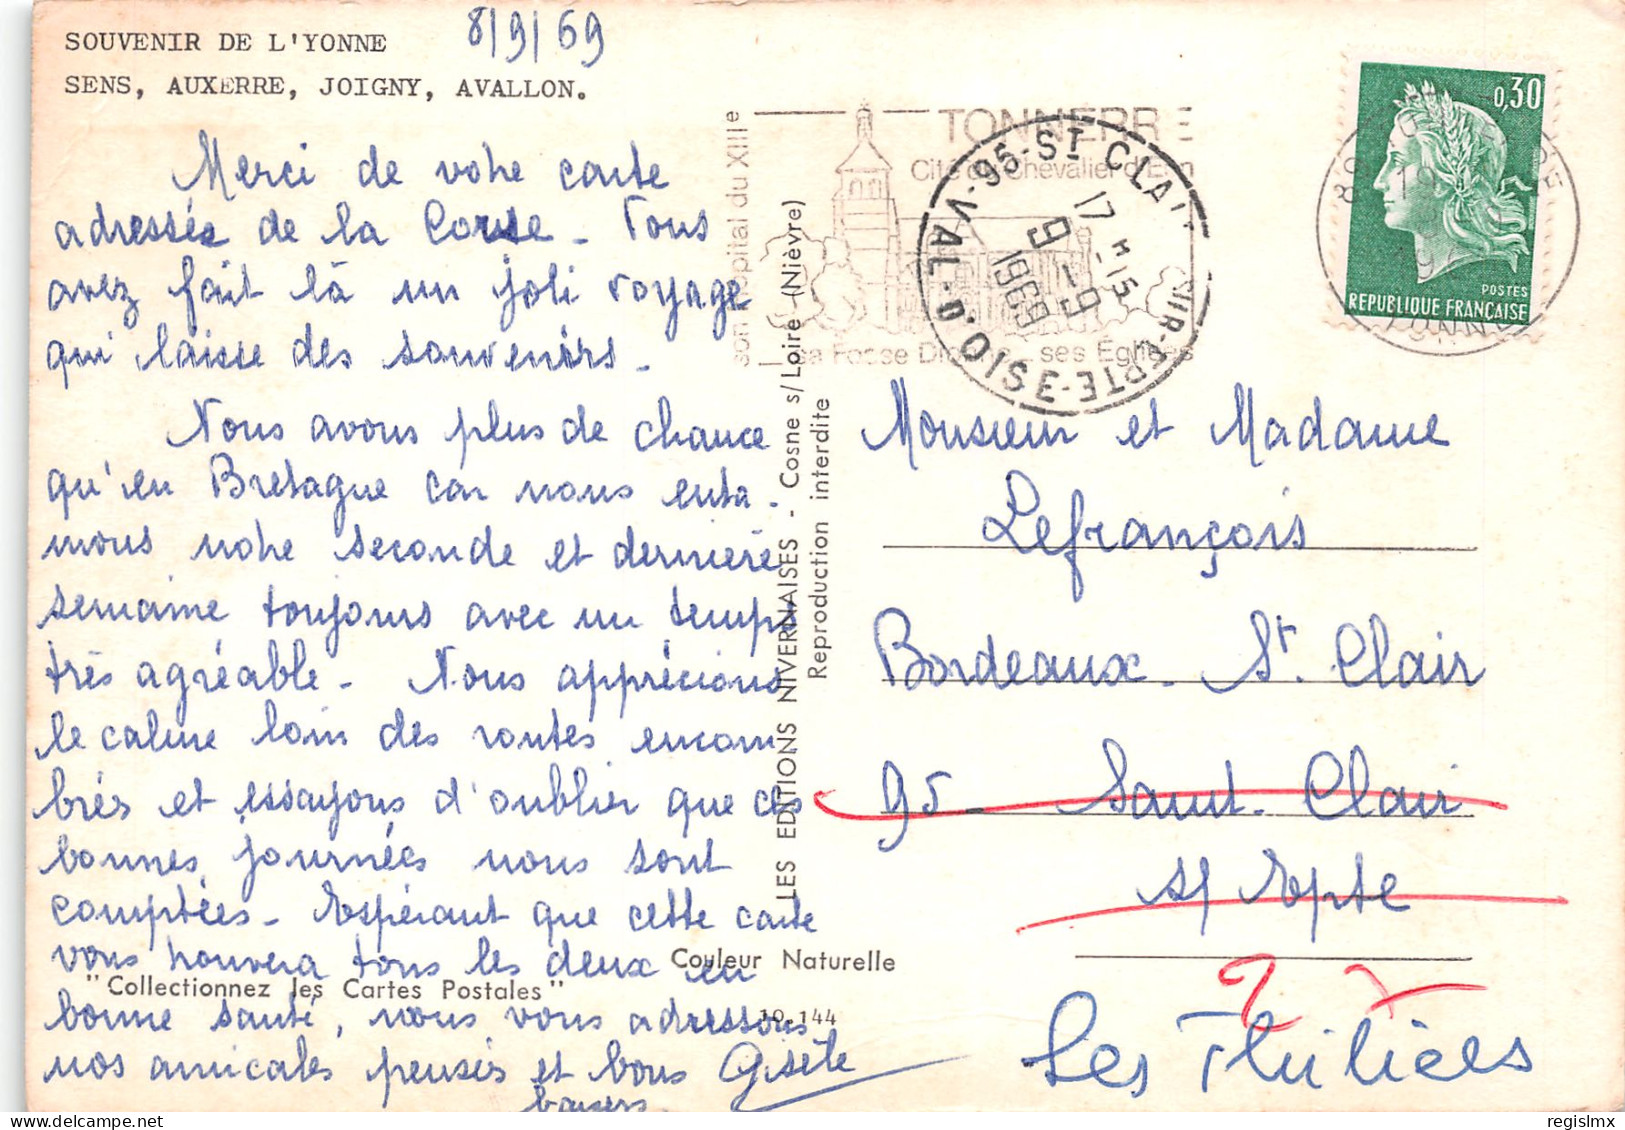 SOUVENIR DE L'YONNE
SENS, AUXERRE, JOIGNY, AVALLON.
8/9/69
Merci de votre carte
adressée de la Corse. Vous
avez fait là un joli voyage
qui laisse des souvenirs.
Nous avons plus de chance
qu'en Bretagne car nous enta-
mons notre seconde et dernière
semaine toujours avec un temps
très agréable. Nous apprécions
le calme loin des routes encom
brés et essayons d'oublier que ces
bonnes journées nous sont
comptées. Espérant que cette carte
vous trouvera tous les deux en
bonne santé, nous vous adressons
nos amicales pensés et bons
baisers
Gisèle
Couleur Naturelle
"Collectionnez les Cartes Postales"
10.144
LES EDITIONS NIVERNAISES - Cosne s/Loire (Nièvre)
Reproduction interdite
son Hôpital du XIIIe
TONNERRE
Cité du Chevalier d'Eon
sa Fosse Dionne ses Églises
95-ST CLAIR-SUR-EPTE-
VAL-D'OISE
17 H -15
9 -9
1969
0,30
POSTES
REPUBLIQUE FRANÇAISE
YONNE
Monsieur et Madame
Lefrançois
Bordeaux. St. Clair
95 - Saint-Clair
s/ Epte
regislmx
delcampe.net